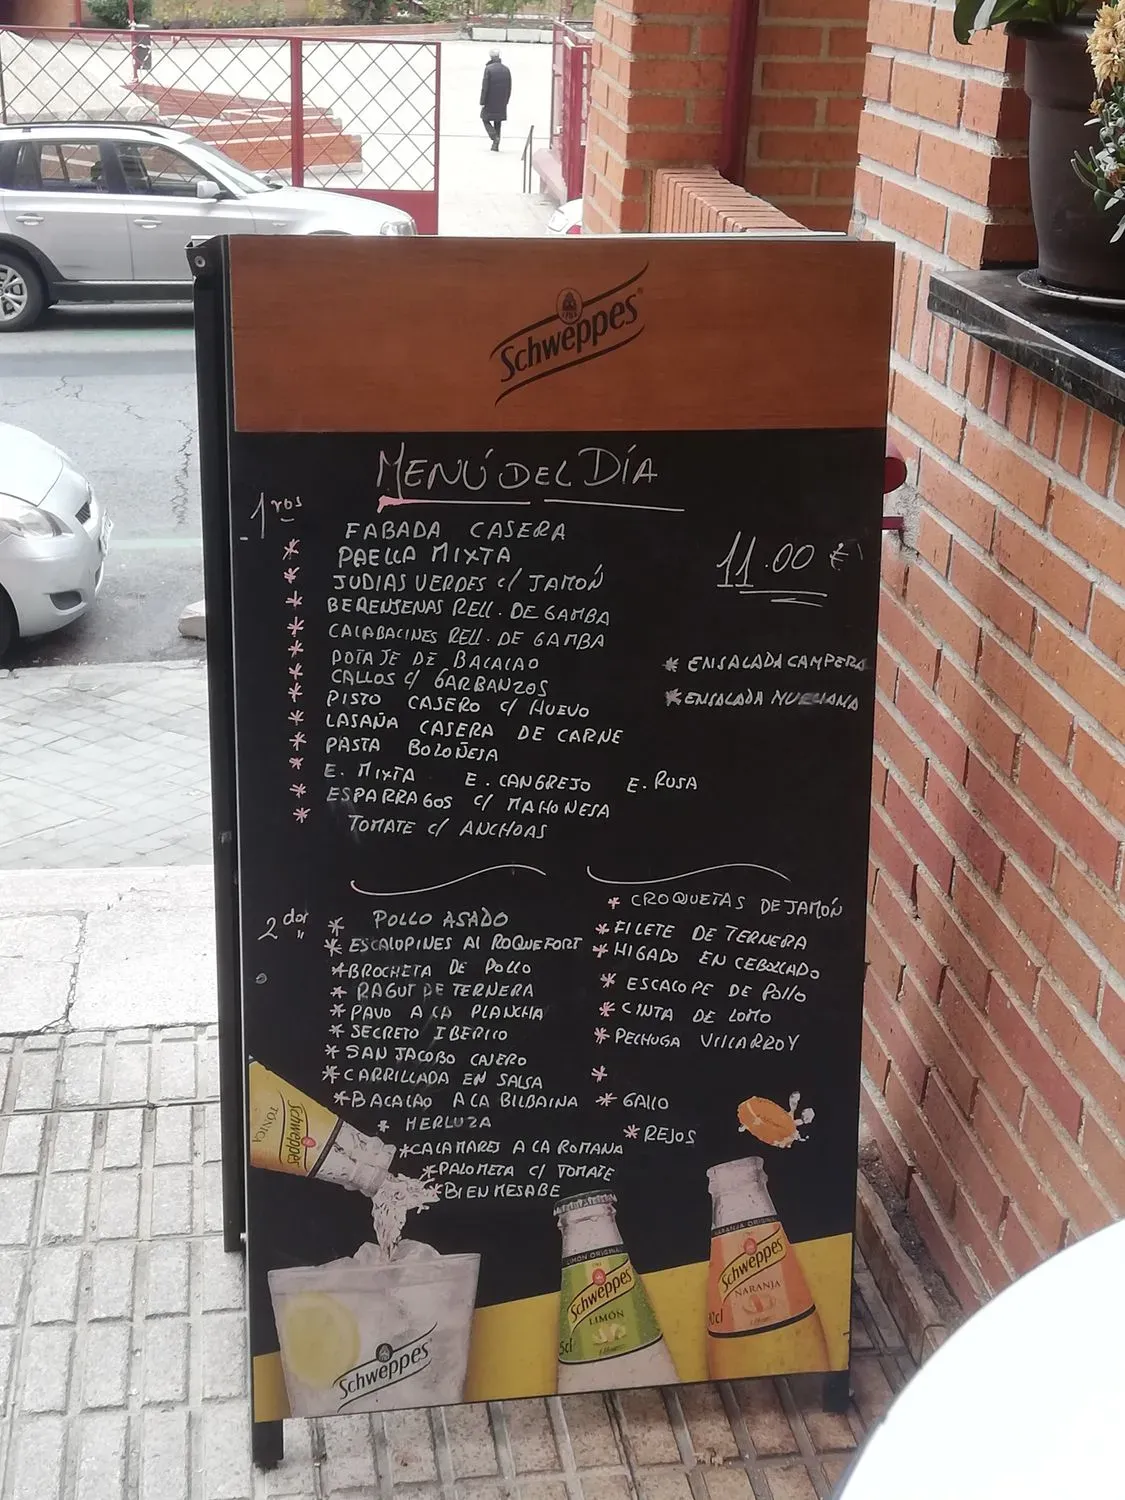 Schweppes
MENÚ DEL DÍA
1ros
FABADA CASERA
* PAELLA MIXTA
* JUDIAS VERDES c/ JAMÓN
* BERENJENAS RELL. DE GAMBA
* CALABACINES RELL. DE GAMBA
* POTAJE DE BACALAO
* CALLOS c/ GARBANZOS
* PISTO CASERO c/ HUEVO
* LASAÑA CASERA DE CARNE
* PASTA BOLOÑESA
* E. MIXTA E. CANGREJO E. RUSA
* ESPARRAGOS c/ MAHONESA
* TOMATE c/ ANCHOAS
11.00 €
* ENSALADA CAMPERA
* ENSALADA MURCIANA
2dos
* POLLO ASADO
* ESCALOPINES AL ROQUEFORT
* BROCHETA DE POLLO
* RAGUT DE TERNERA
* PAVO A LA PLANCHA
* SECRETO IBERICO
* SAN JACOBO CASERO
* CARRILLADA EN SALSA
* BACALAO A LA BILBAINA
* MERLUZA
* CALAMARES A LA ROMANA
* PALOMETA c/ TOMATE
* BIENMESABE
* CROQUETAS DE JAMÓN
* FILETE DE TERNERA
* HIGADO EN CEBOLLADO
* ESCALOPE DE POLLO
* CINTA DE LOMO
* PECHUGA VILLARROY
*
* GALLO
* REJOS
Schweppes
TÓNICA
Schweppes
LIMÓN ORIGINAL
Schweppes
LIMÓN
NARANJA ORIGINAL
Schweppes
NARANJA